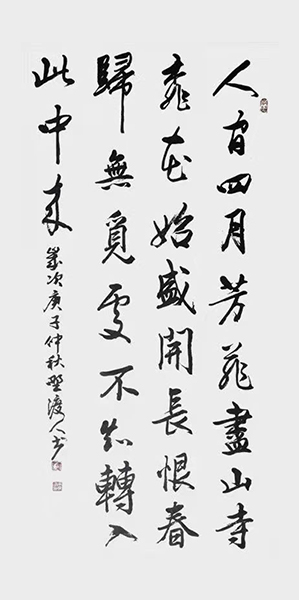 人間四月芳菲盡山寺
桃花始盛開長恨春
歸無覓處不知轉入
此中来
歲次庚子仲秋野渡人书